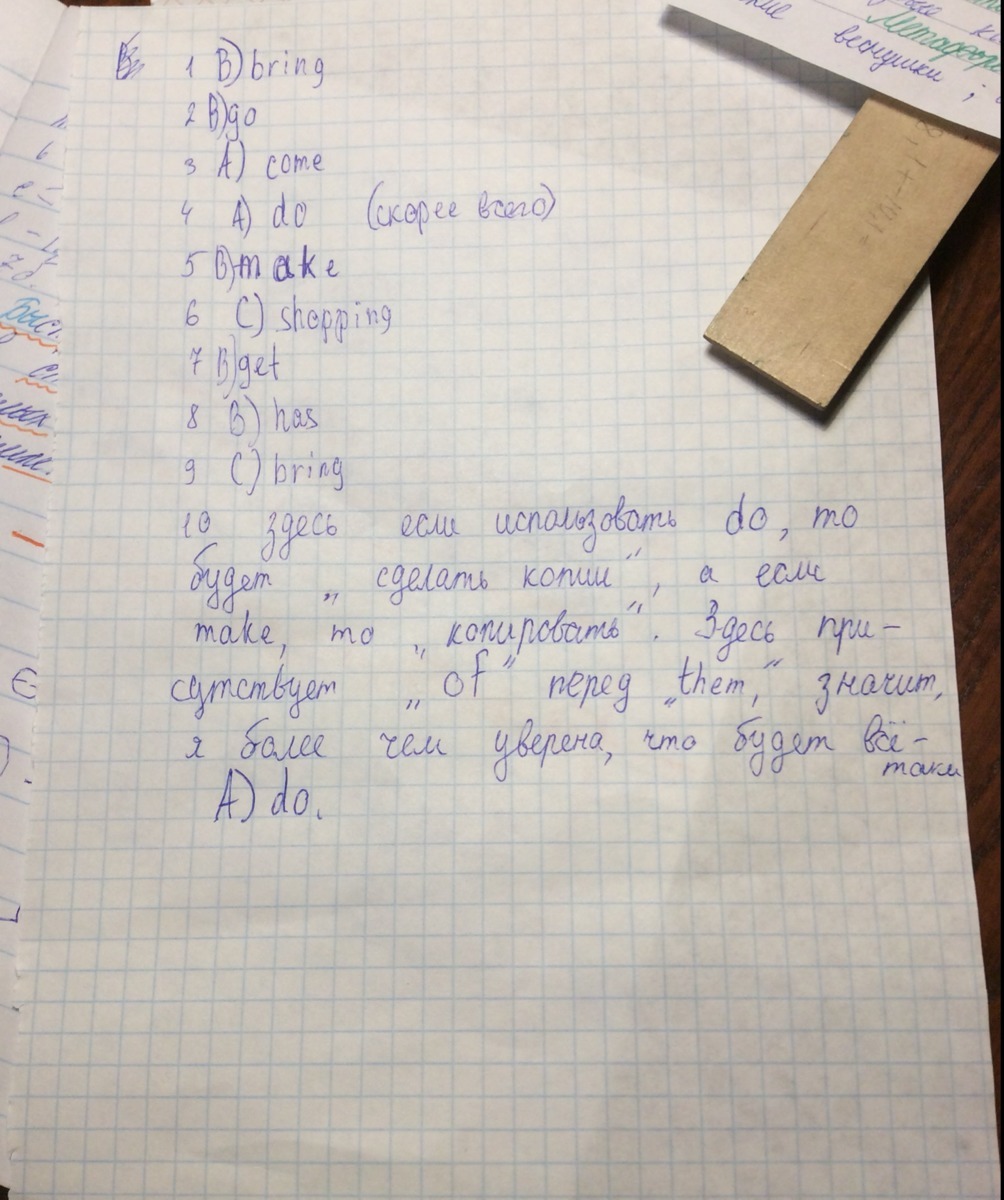 1 B) bring
2 B) go
3 A) come
4 A) do (скорее всего)
5 B) make
6 C) shopping
7 B) get
8 B) has
9 C) bring
10 здесь если использовать do, то
будет „сделать копии", а если
make, то „копировать". Здесь при-
сутствует „of" перед „them", значит,
я более чем уверена, что будет всё-
таки
A) do.
Метафор
веснушки ;